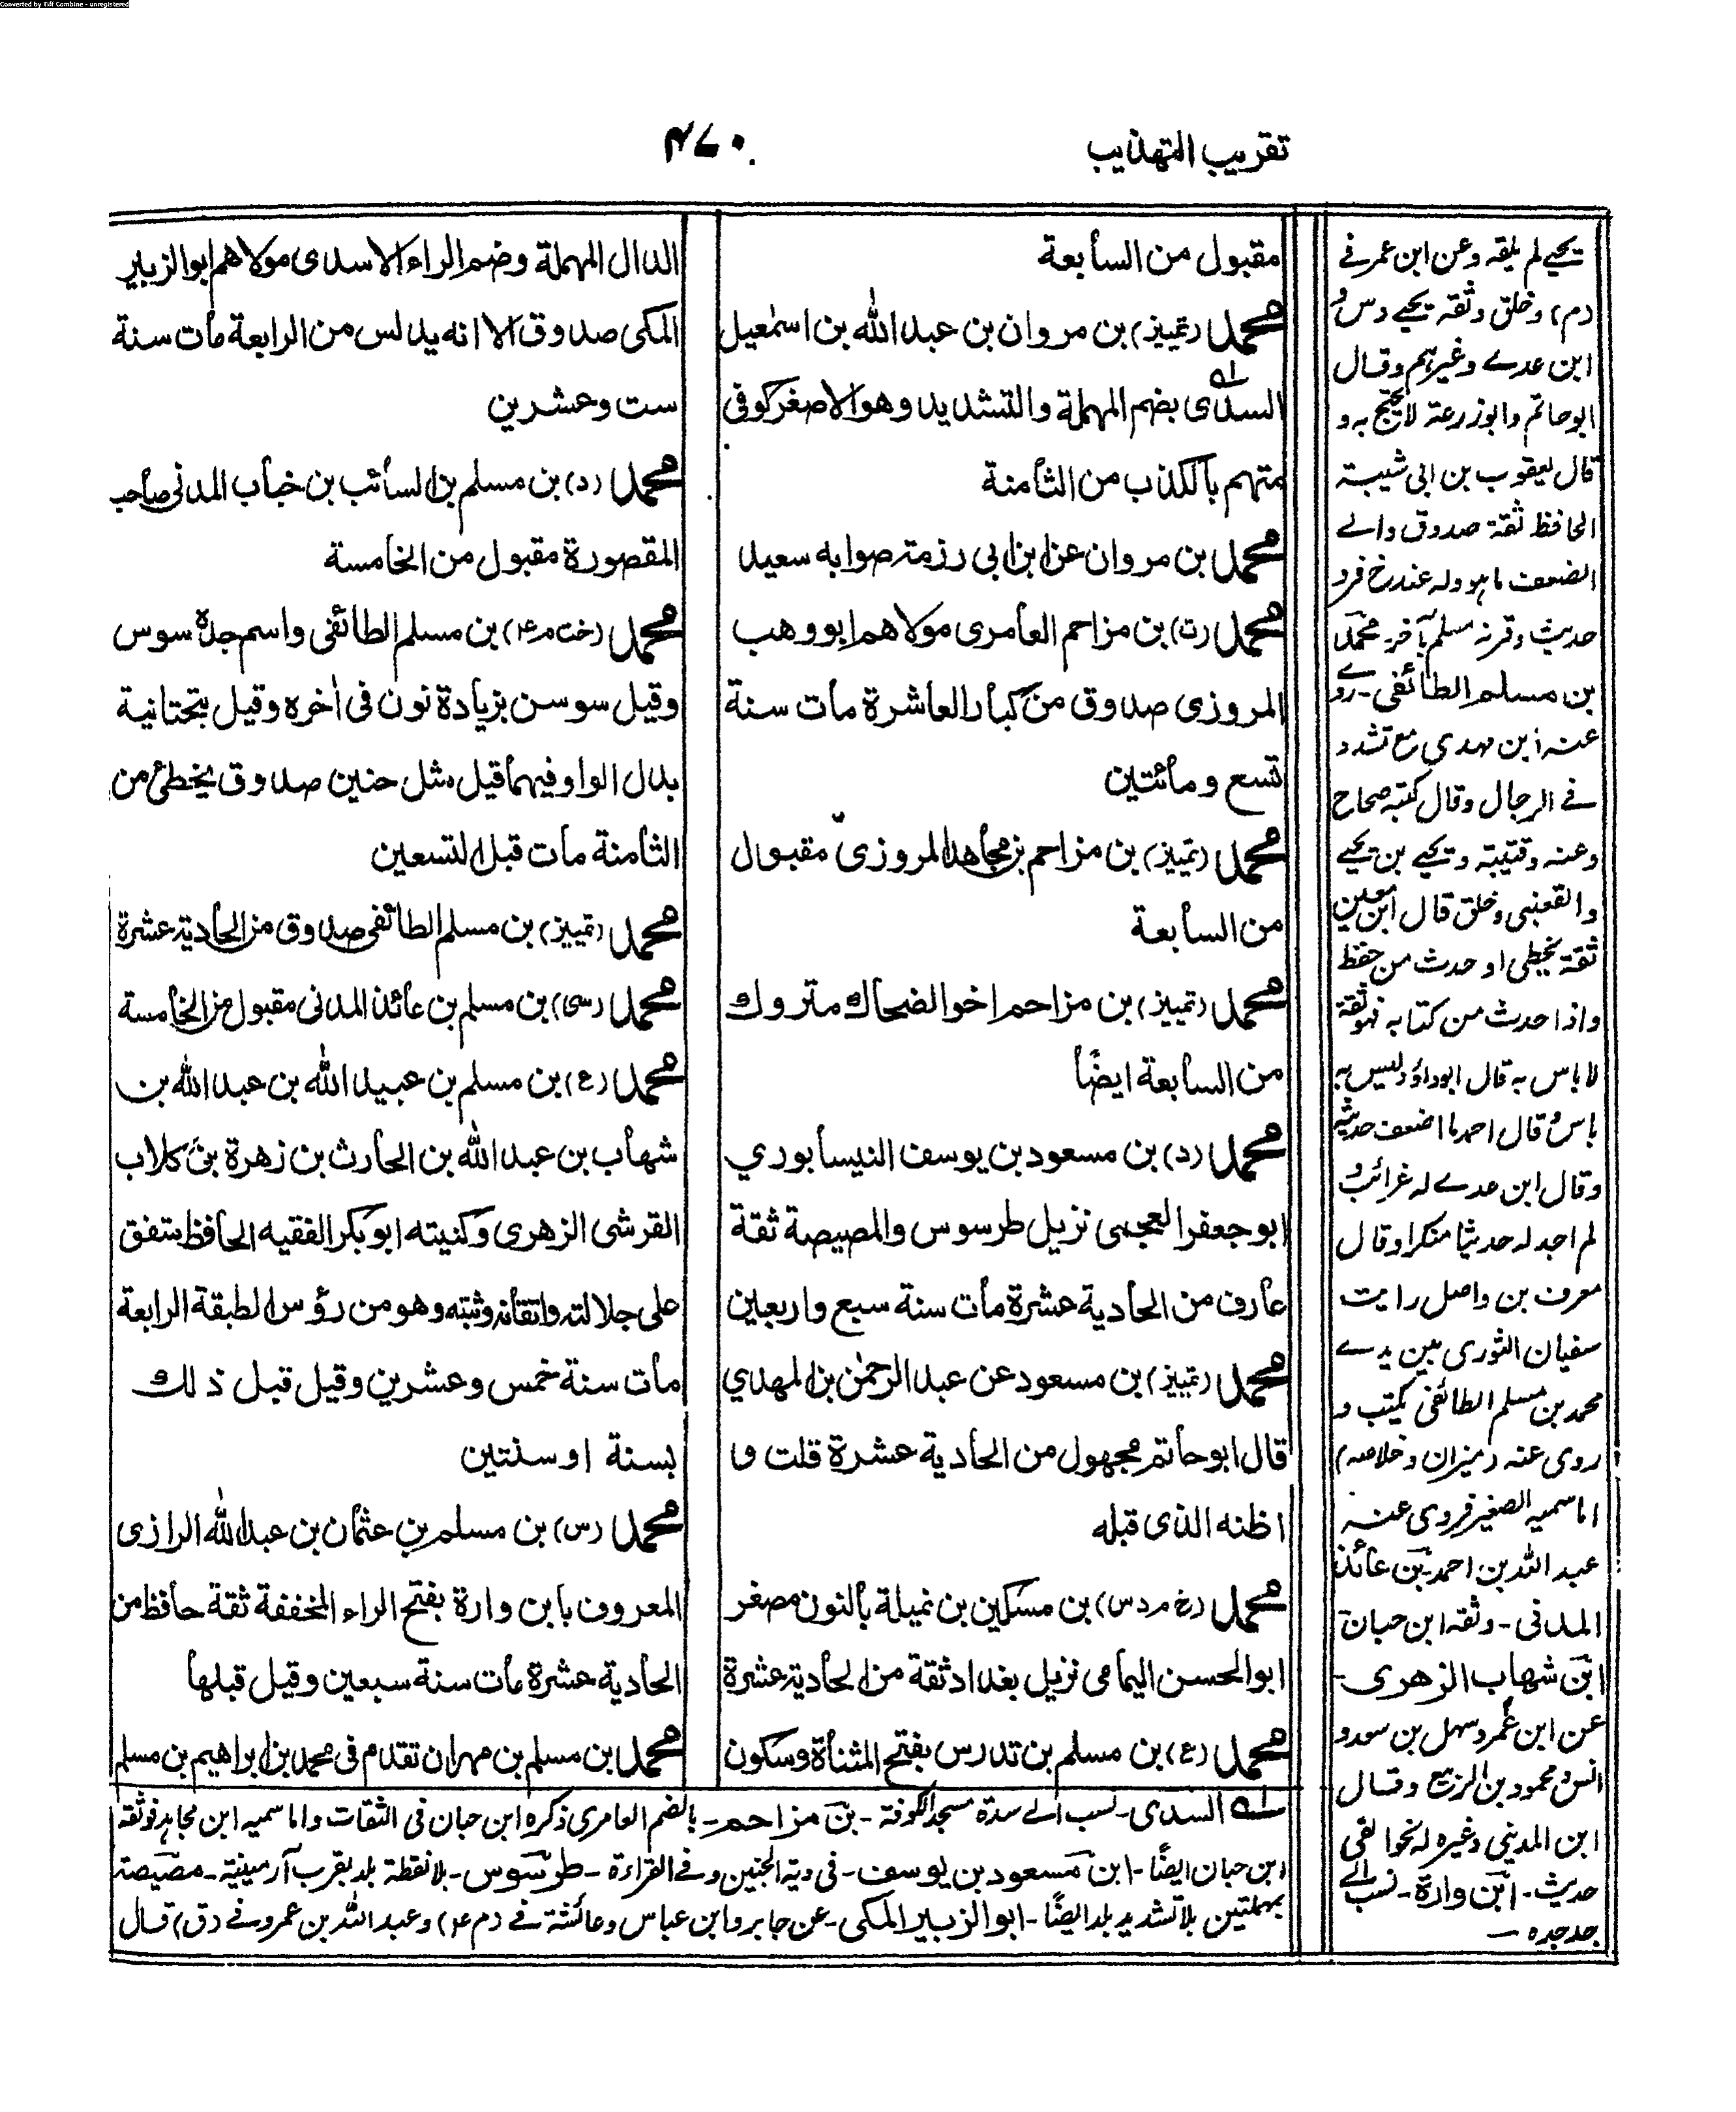 Converted by Tiff Combine - unregistered
تقريب التهذيب
٤٧٠
مقبول من السابعة
محمد (تمييز) بن مروان بن عبد الله بن اسمٰعيل
السدى بضم المهملة والتشديد وهو الاصغر كوفى
متهم بالكذب من الثامنة
محمد بن مروان عن ابن ابى رزمة صوابه سعيد
محمد (ت) بن مزاحم العامرى مولاهم ابو وهب
المروزى صدوق من كبار العاشرة مات سنة
تسع ومائتين
محمد (تمييز) بن مزاحم بن مجاهد المروزى مقبول
من السابعة
محمد (تمييز) بن مزاحم اخو الضحاك متروك
من السابعة ايضًا
محمد (د) بن مسعود بن يوسف النيسابوري
ابو جعفر العجمى نزيل طرسوس والمصيصة ثقة
عارف من الحادية عشرة مات سنة سبع واربعين
محمد (تمييز) بن مسعود عن عبد الرحمٰن بن المهدي
قال ابو حاتم مجهول من الحادية عشرة قلت و
اظنه الذى قبله
محمد (خ م د س) بن مسكين بن نميلة بالنون مصغر
ابو الحسن اليمامى نزيل بغداد ثقة من الحادية عشرة
محمد (ع) بن مسلم بن تدرس بفتح المثناة وسكون
الدال المهملة وضم الراء الاسدى مولاهم ابو الزبير
المكى صدوق الا انه يدلس من الرابعة مات سنة
ست وعشرين
محمد (د) بن مسلم بن السائب بن خباب المدنى صاحب
المقصورة مقبول من الخامسة
محمد (خت م ٤) بن مسلم الطائفى واسم جده سوس
وقيل سوسن بزيادة نون فى اٰخره وقيل بتحتانية
بدل الواو فيهما قيل مثل حنين صدوق يخطئ من
الثامنة مات قبل التسعين
محمد (تمييز) بن مسلم الطائفى صدوق من الحادية عشرة
محمد (سى) بن مسلم بن عائذ المدنى مقبول من الخامسة
محمد (ع) بن مسلم بن عبيد الله بن عبد الله بن
شهاب بن عبد الله بن الحارث بن زهرة بن كلاب
القرشى الزهرى وكنيته ابو بكر الفقيه الحافظ متفق
على جلالته واتقانه وثبته وهو من رؤس الطبقة الرابعة
مات سنة خمس وعشرين وقيل قبل ذلك
بسنة او سنتين
محمد (س) بن مسلم بن عثمان بن عبد الله الرازى
المعروف بابن وارة بفتح الراء المخففة ثقة حافظ من
الحادية عشرة مات سنة سبعين وقيل قبلها
محمد بن مسلم بن مهران تقدم فى محمد بن ابراهيم بن مسلم
السدى - نسب الے سدة مسجد الكوفة - بن مزاحم - بالضم العامرى ذكره ابن حبان فى الثقات واما سميه ابن مجاهد فوثقه
ابن حبان ايضًا - ابن مسعود بن يوسف - فى دية الجنين وفے القراءة - طرسوس - بلا نقطة بلد بقرب آرمينية - مصيصة
بمهملتين بلا تشديد بلد ايضًا - ابو الزبير المكى - عن جابر وابن عباس وعائشة فے (م ٤) وعبد الله بن عمرو فے (ق) قال
يحيے لم يلقه وعن ابن عمر فے
(م) وخلق وثقه يحيے و س و
ابن عدے وغيرهم وقال
ابو حاتم وابو زرعة لا يحتج به و
قال يعقوب بن ابى شيبة
الحافظ ثقة صدوق والے
الضعف ما هو وله عند خ فرد
حديث وقرنه مسلم بآخر - محمد
بن مسلم الطائفى - روے
عنه ابن مهدى مع تشدد
فے الرجال وقال كتبه صحاح
وعنه وقتيبة ويحيے بن يحيے
والقعنبى وخلق قال ابن معين
ثقة يخطى اذ حدث من حفظ
واذا حدث من كتابه فهو ثقة
لا باس به قال ابو داؤد ليس به
باس و قال احمد ما اضعف حديثه
وقال ابن عدے له غرائب و
لم اجد له حديثا منكرا وقال
معرف بن واصل رايت
سفيان الثورى بين يدے
محمد بن مسلم الطائفى يكتب و
روى عنه (ميزان وخلاصه)
اما سميه الصغير فروى عنه
عبد الله بن احمد - بن عائذ
المدنى - وثقه ابن حبان
ابن شهاب الزهرى -
عن ابن عمر وسهل بن سعد و
انس و محمود بن الربيع وقال
ابن المدينى وغيره له نحو الفى
حديث - ابن وارة - نسب الے
جد جده -